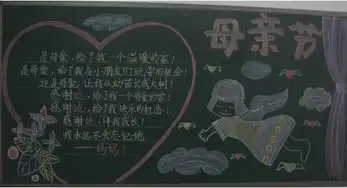 母亲节
是母爱，给了我一个温暖的家！
是母爱，给了我与小朋友们玩耍的机会！
还是母爱，让我从幼苗长成大树！
感谢她，给了我一个可爱的家！
感谢她，给了我快乐的机会！
感谢她，伴我成长！
我永远不会忘记她
——妈妈！